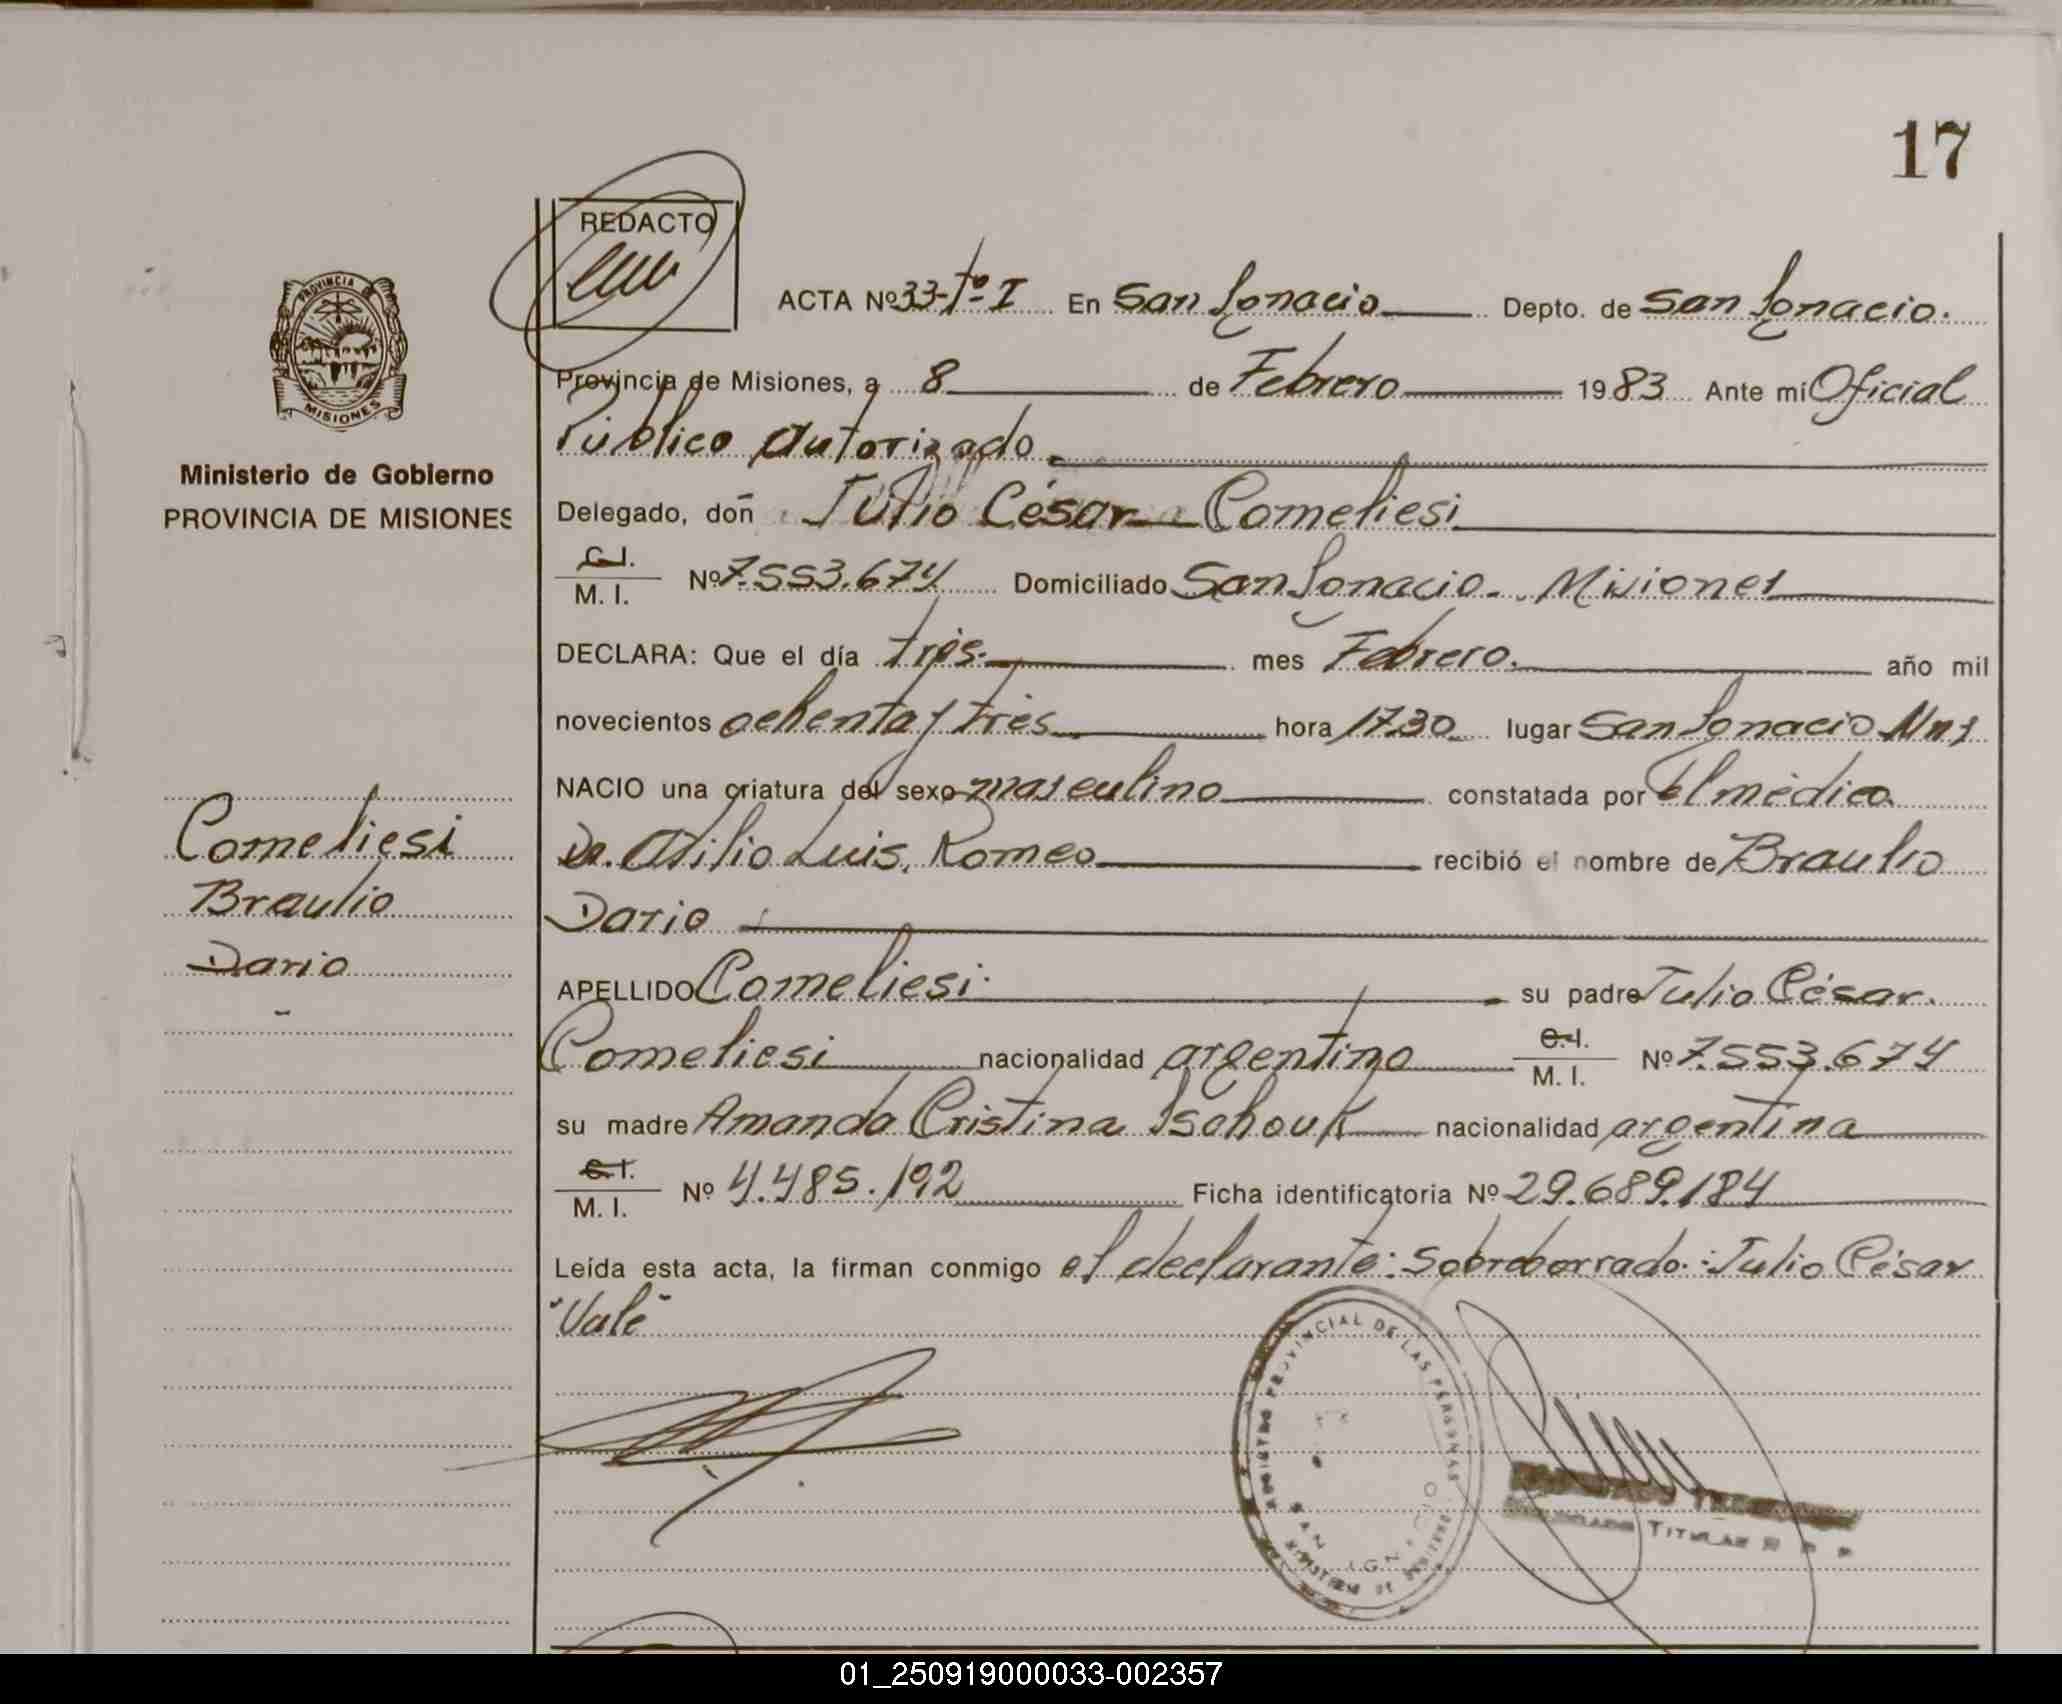 17
REDACTO
ACTA Nº 33-Tº-I En San Ignacio Depto. de San Ignacio.
Provincia de Misiones, a 8 de Febrero 1983 Ante mi Oficial
Público Autorizado
Delegado, don Julio César Comeliesi
C.I. M. I. Nº 7.553.674 Domiciliado San Ignacio - Misiones
DECLARA: Que el día tres mes Febrero. año mil
novecientos ochenta y tres hora 17.30 lugar San Ignacio Mns
NACIO una criatura del sexo masculino constatada por El médico
Dr. Atilio Luis, Romeo recibió el nombre de Braulio
Dario
APELLIDO Comeliesi su padre Julio César.
Comeliesi nacionalidad argentino C.I. M. I. Nº 7.553.674
su madre Amanda Cristina Tschouk nacionalidad argentina
C.I. M. I. Nº 4.485.192 Ficha identificatoria Nº 29.689.184
Leída esta acta, la firman conmigo el declarante: Sobreborrado: Julio César
"Vale"
PROVINCIA DE
MISIONES
Ministerio de Gobierno
PROVINCIA DE MISIONES
Comeliesi
Braulio
Dario
REGISTRO PROVINCIAL DE LAS PERSONAS
SAN IGNACIO
MINISTERIO DE GOBIERNO
TITULAR
01_250919000033-002357